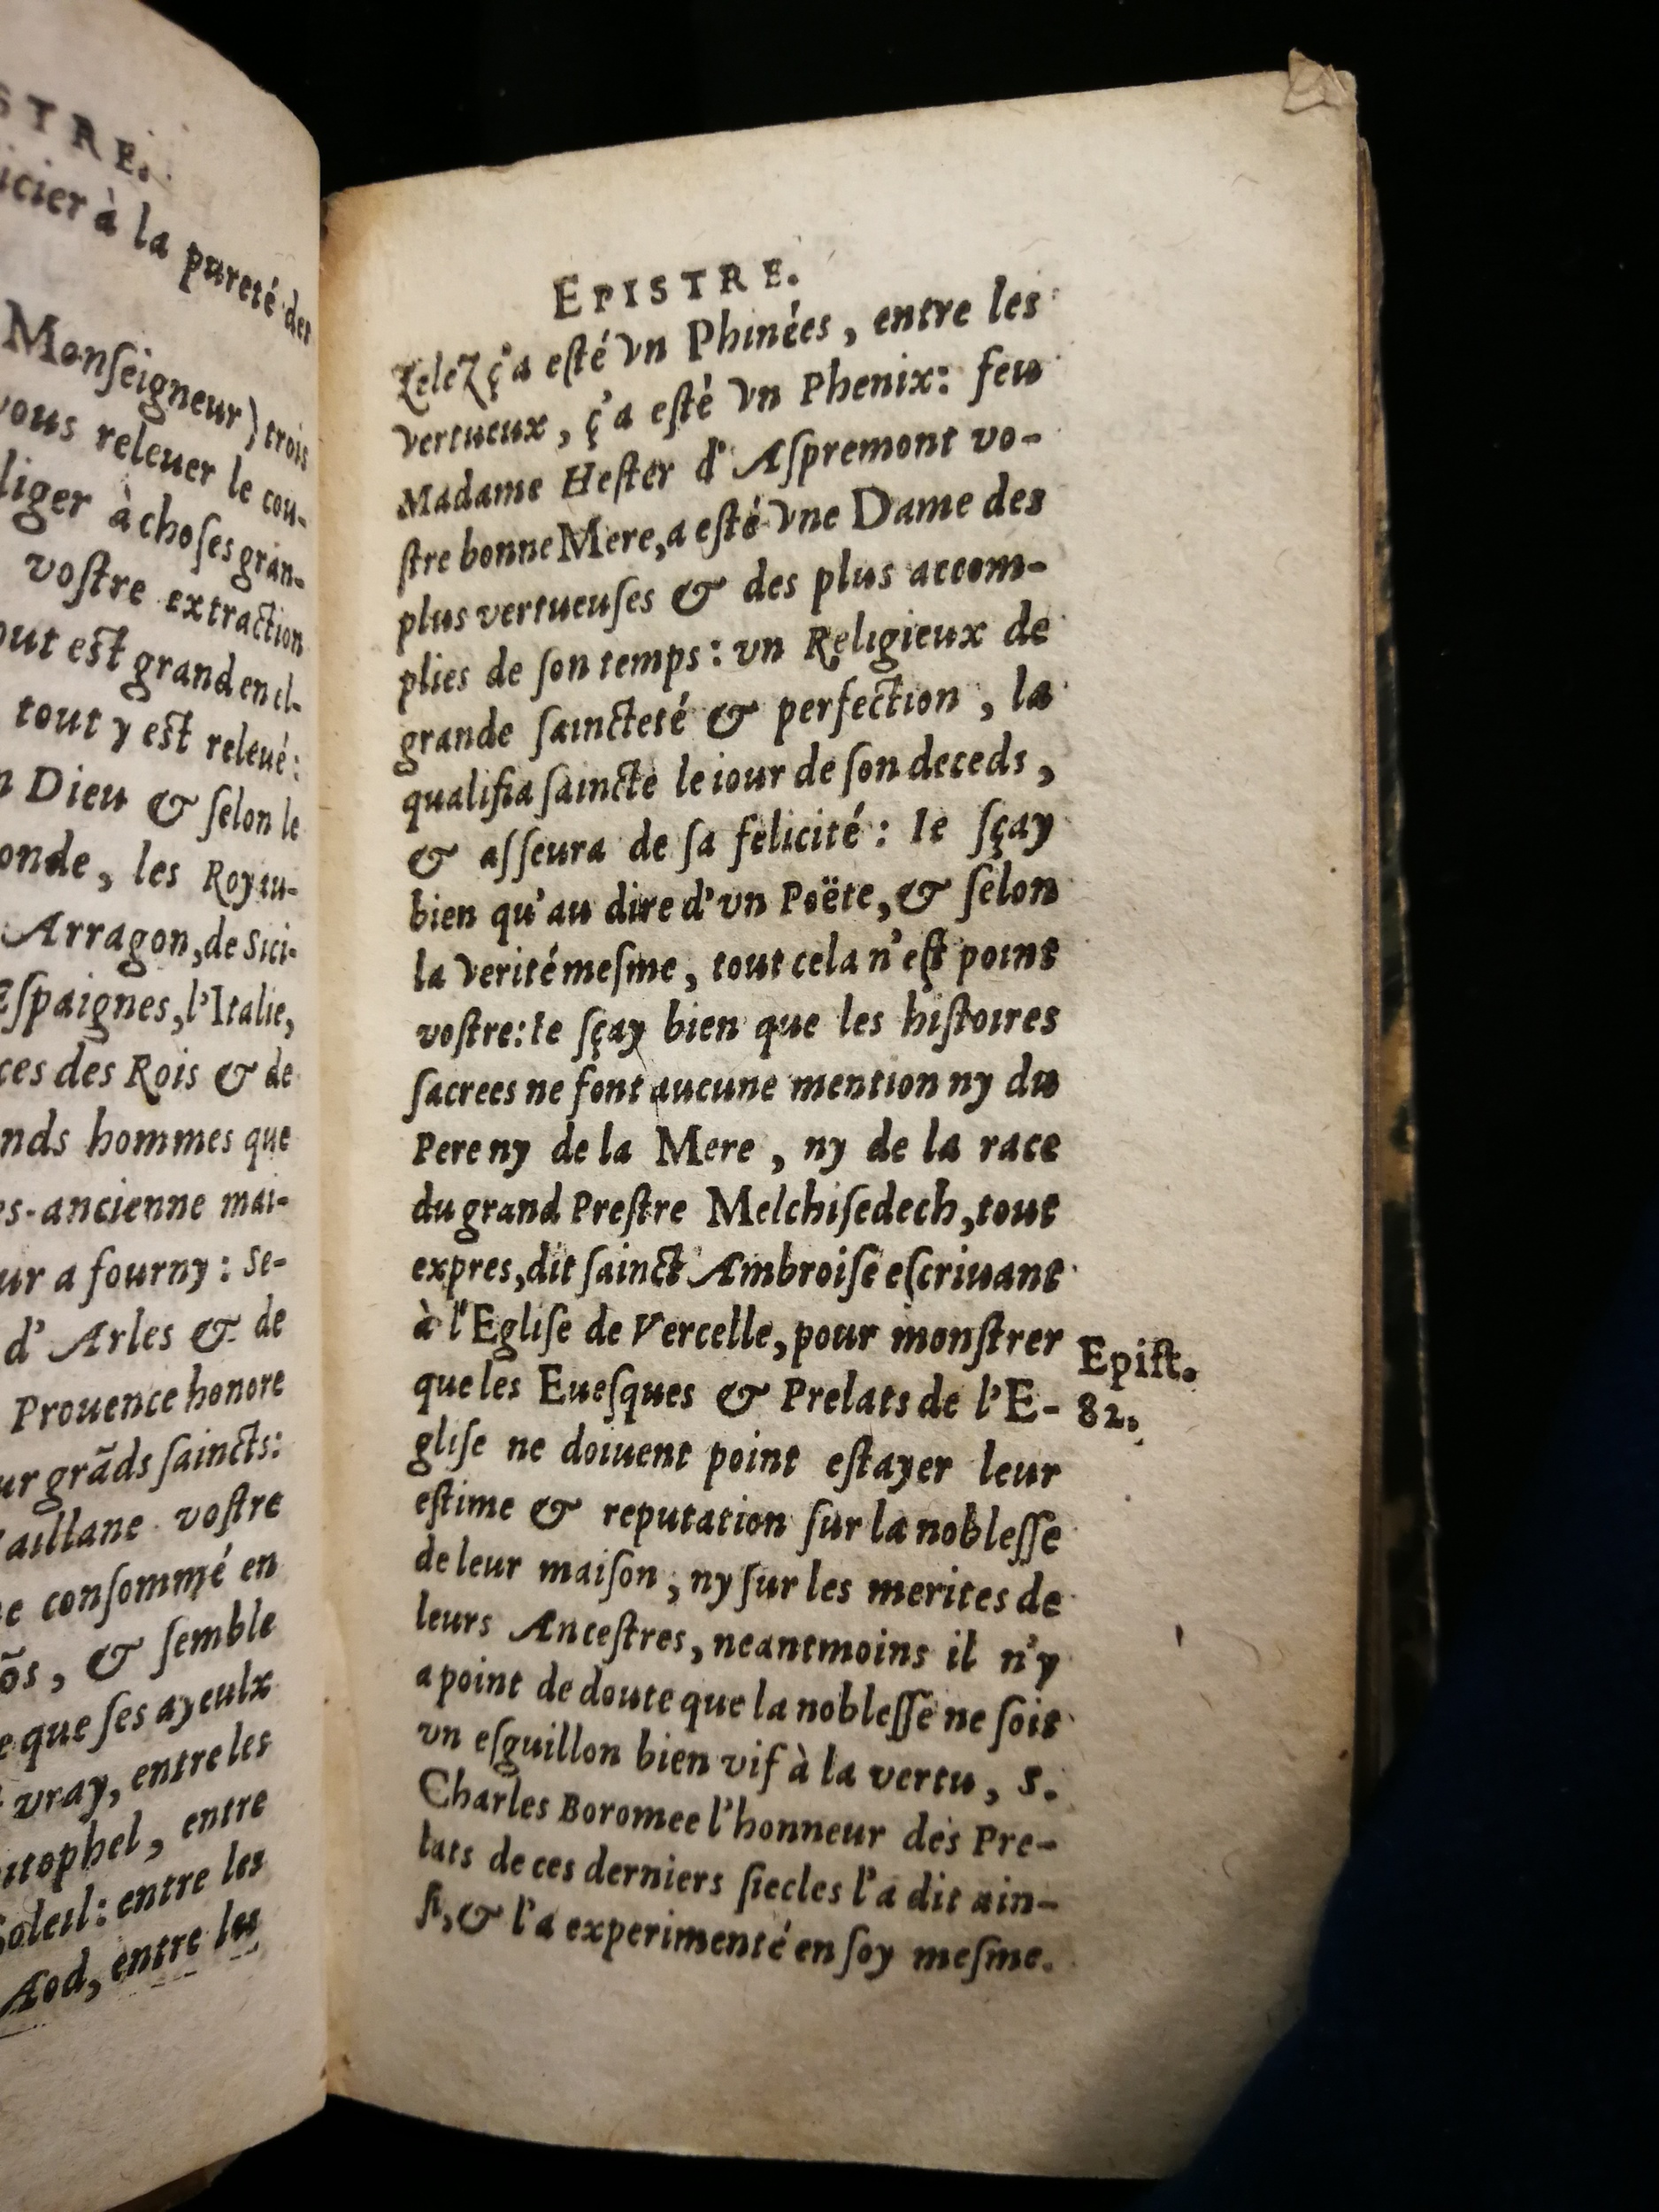 STRE.
icier à la pureté des
Monſeigneur) trois
vous releuer le cou-
liger à choſes gran-
voſtre extraction
out eſt grand en el-
tout y eſt releué:
n Dieu & ſelon le
onde, les Royau-
Arragon, de Sici-
Eſpaignes, l'Italie,
ces des Rois & de
nds hommes que
es-ancienne mai-
ur a fourny: Se-
d'Arles & de
Prouence honore
ur grãds ſaincts:
aillane voſtre
e conſommé en
õs, & ſemble
e que ſes ayeulx
vray, entre les
itophel, entre
Soleil: entre les
Aod, entre les
EPISTRE.
Zelez ç'a eſté vn Phinées, entre les
vertueux, ç'a eſté vn Phenix: feu
Madame Heſter d'Aſpremont vo-
ſtre bonne Mere, a eſté vne Dame des
plus vertueuſes & des plus accom-
plies de ſon temps: vn Religieux de
grande ſaincteté & perfection, la
qualifia ſaincte le iour de ſon deceds,
& aſſeura de ſa felicité: Ie ſçay
bien qu'au dire d'vn Poëte, & ſelon
la verité meſme, tout cela n'eſt point
voſtre: Ie ſçay bien que les hiſtoires
ſacrees ne font aucune mention ny du
Pere ny de la Mere, ny de la race
du grand Preſtre Melchiſedech, tout
expres, dit ſainct Ambroiſe eſcriuant
à l'Egliſe de Vercelle, pour monſtrer
que les Eueſques & Prelats de l'E-
gliſe ne doiuent point eſtayer leur
eſtime & reputation ſur la nobleſſe
de leur maiſon, ny ſur les merites de
leurs Anceſtres, neantmoins il n'y
a point de doute que la nobleſſe ne ſoit
vn eſguillon bien vif à la vertu, S.
Charles Boromee l'honneur des Pre-
lats de ces derniers ſiecles l'a dit ain-
ſi, & l'a experimenté en ſoy meſme.
Epiſt.
82.